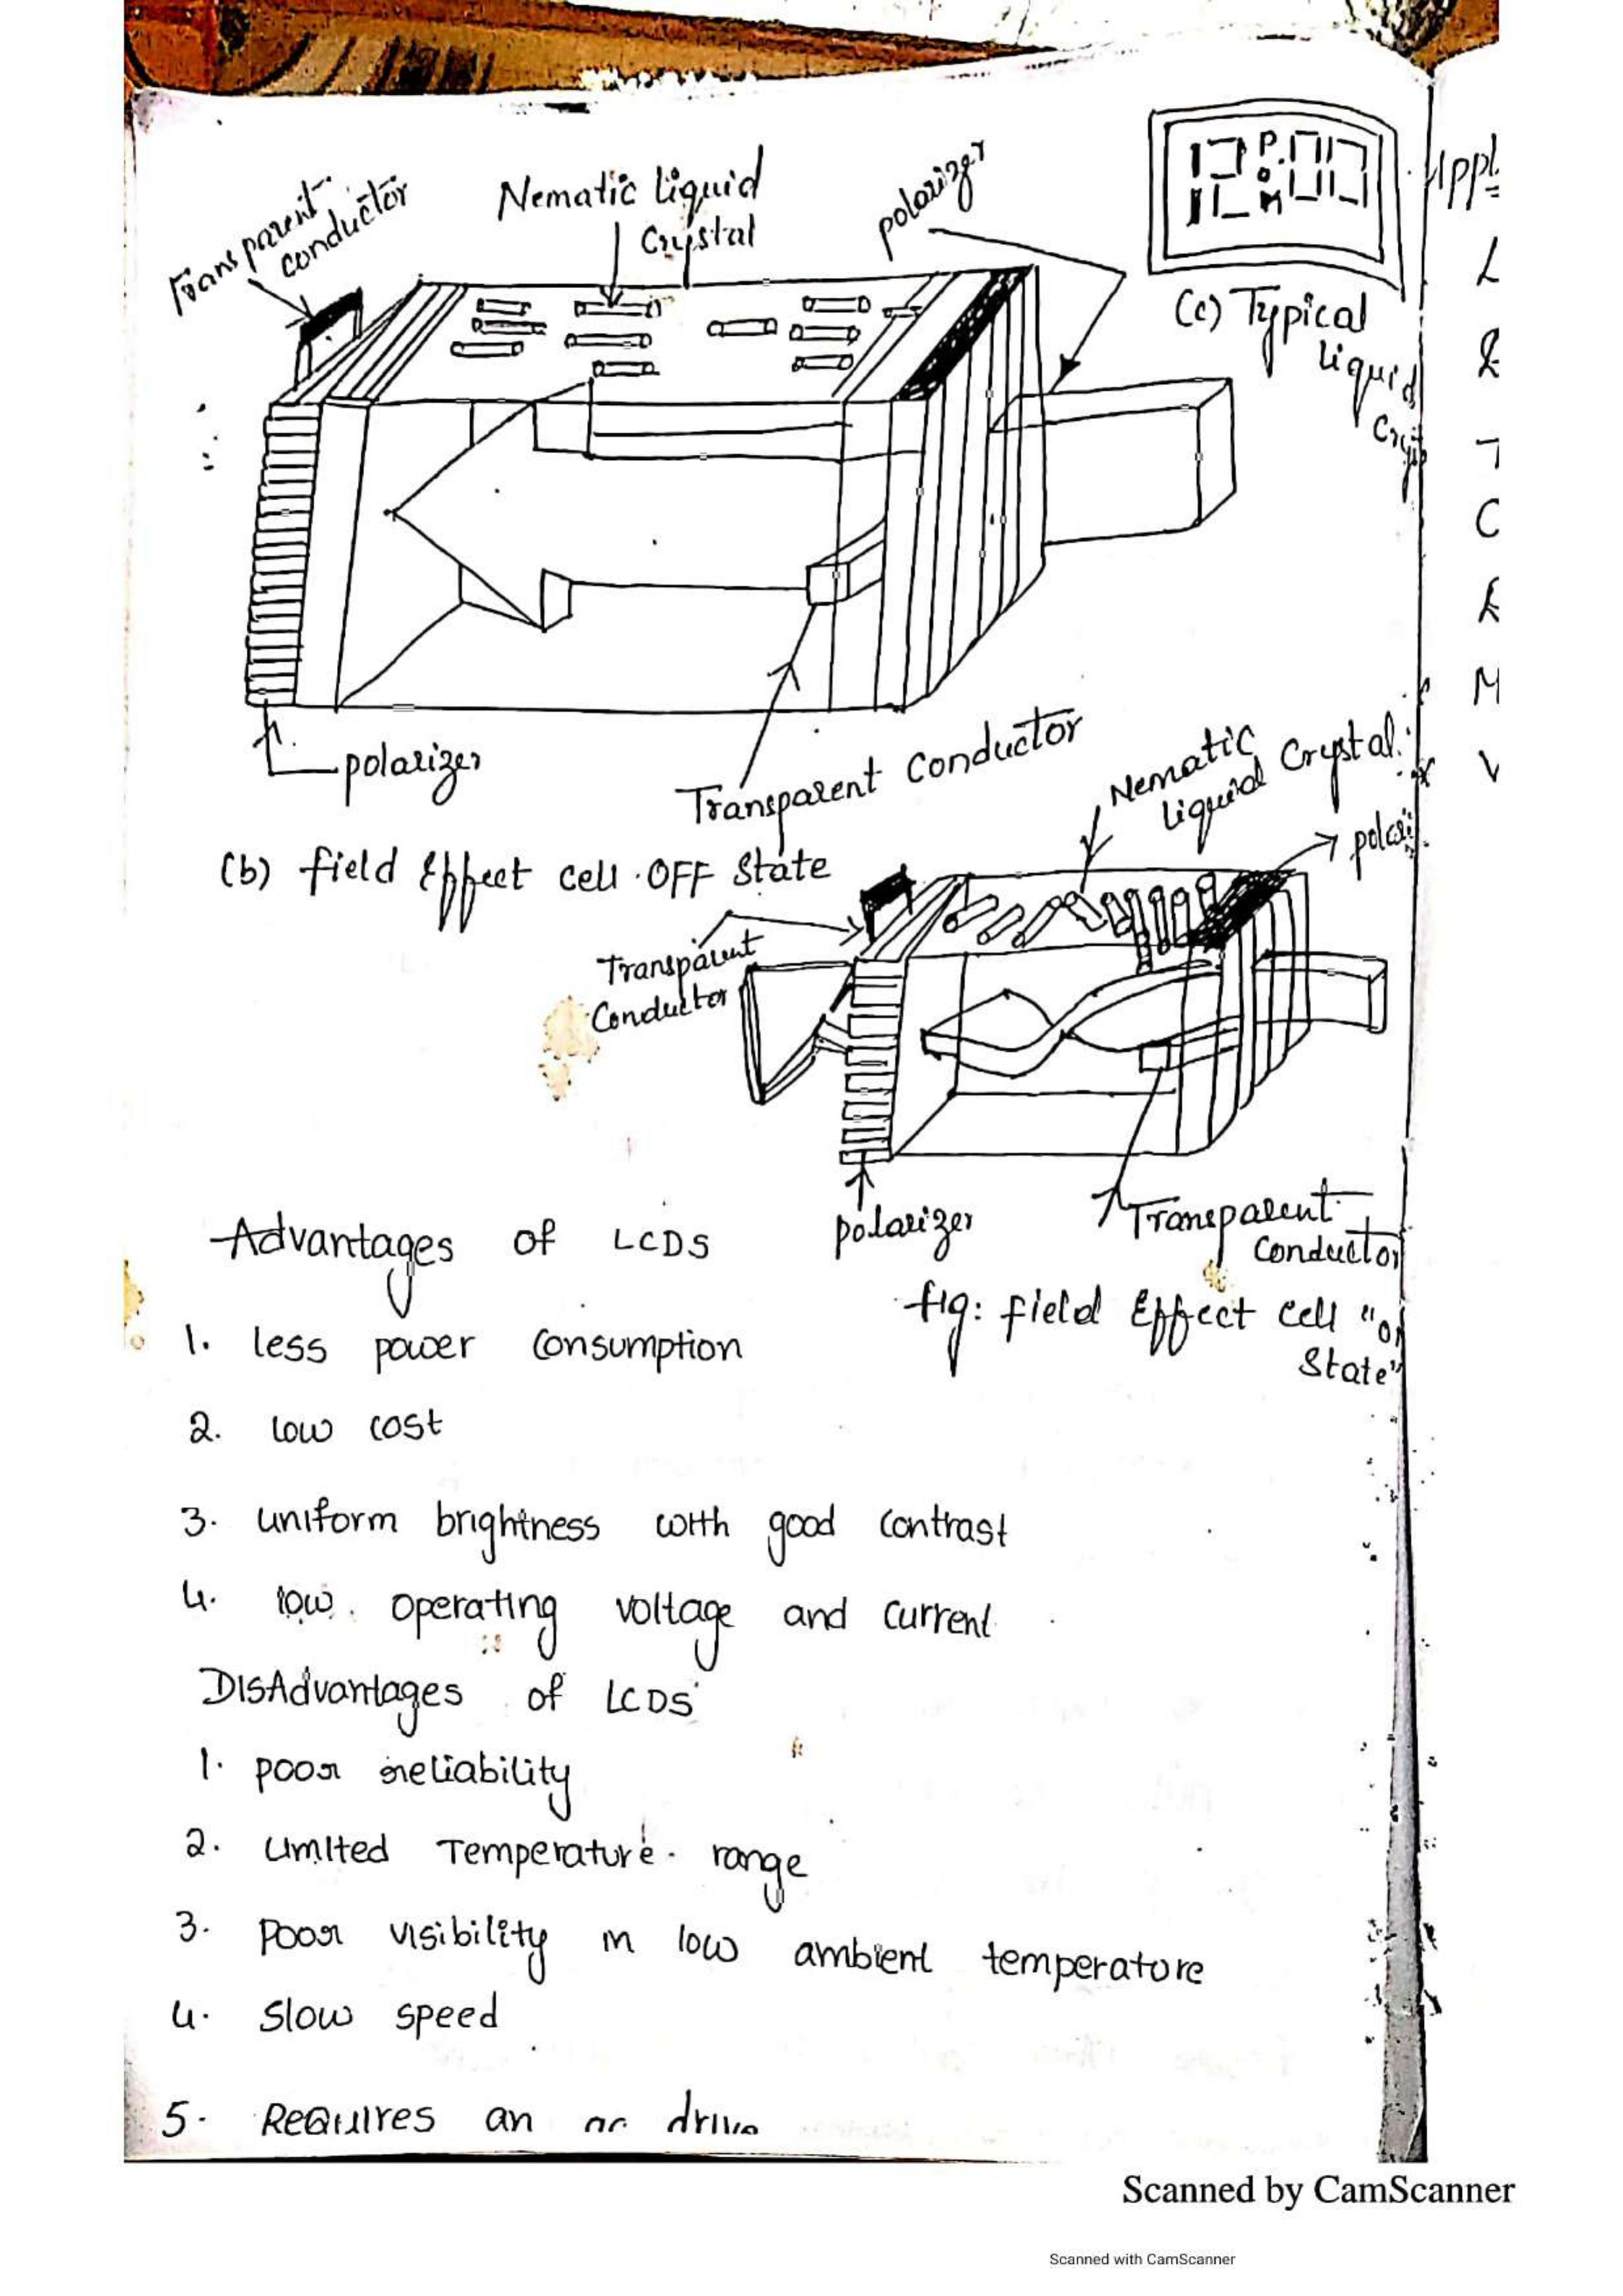 Transparent
conductor
Nematic liquid
Crystal
polarizer
12 P.M 00
(c) Typical
liquid
Appl
L
T
C
M
V
polarizer
Transparent Conductor
(b) field Effect cell OFF State
Nematic
liquid Crystal
Transparent
Conductor
polarizer
Transparent
Conductor
fig: field Effect cell "on
State"
Advantages of LCDS
1. less power consumption
2. low cost
3. uniform brightness with good contrast
4. low operating voltage and current
DISAdvantages of LCDS
1. poor reliability
2. limited Temperature range
3. Poor visibility in low ambient temperature
4. Slow speed
5. Requires an ac drive
Scanned by CamScanner
Scanned with CamScanner